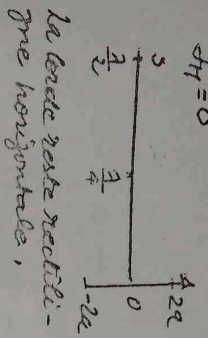 2a
0
-2a
λ/4
λ/2
La corde reste rectili-
gne horizontale,